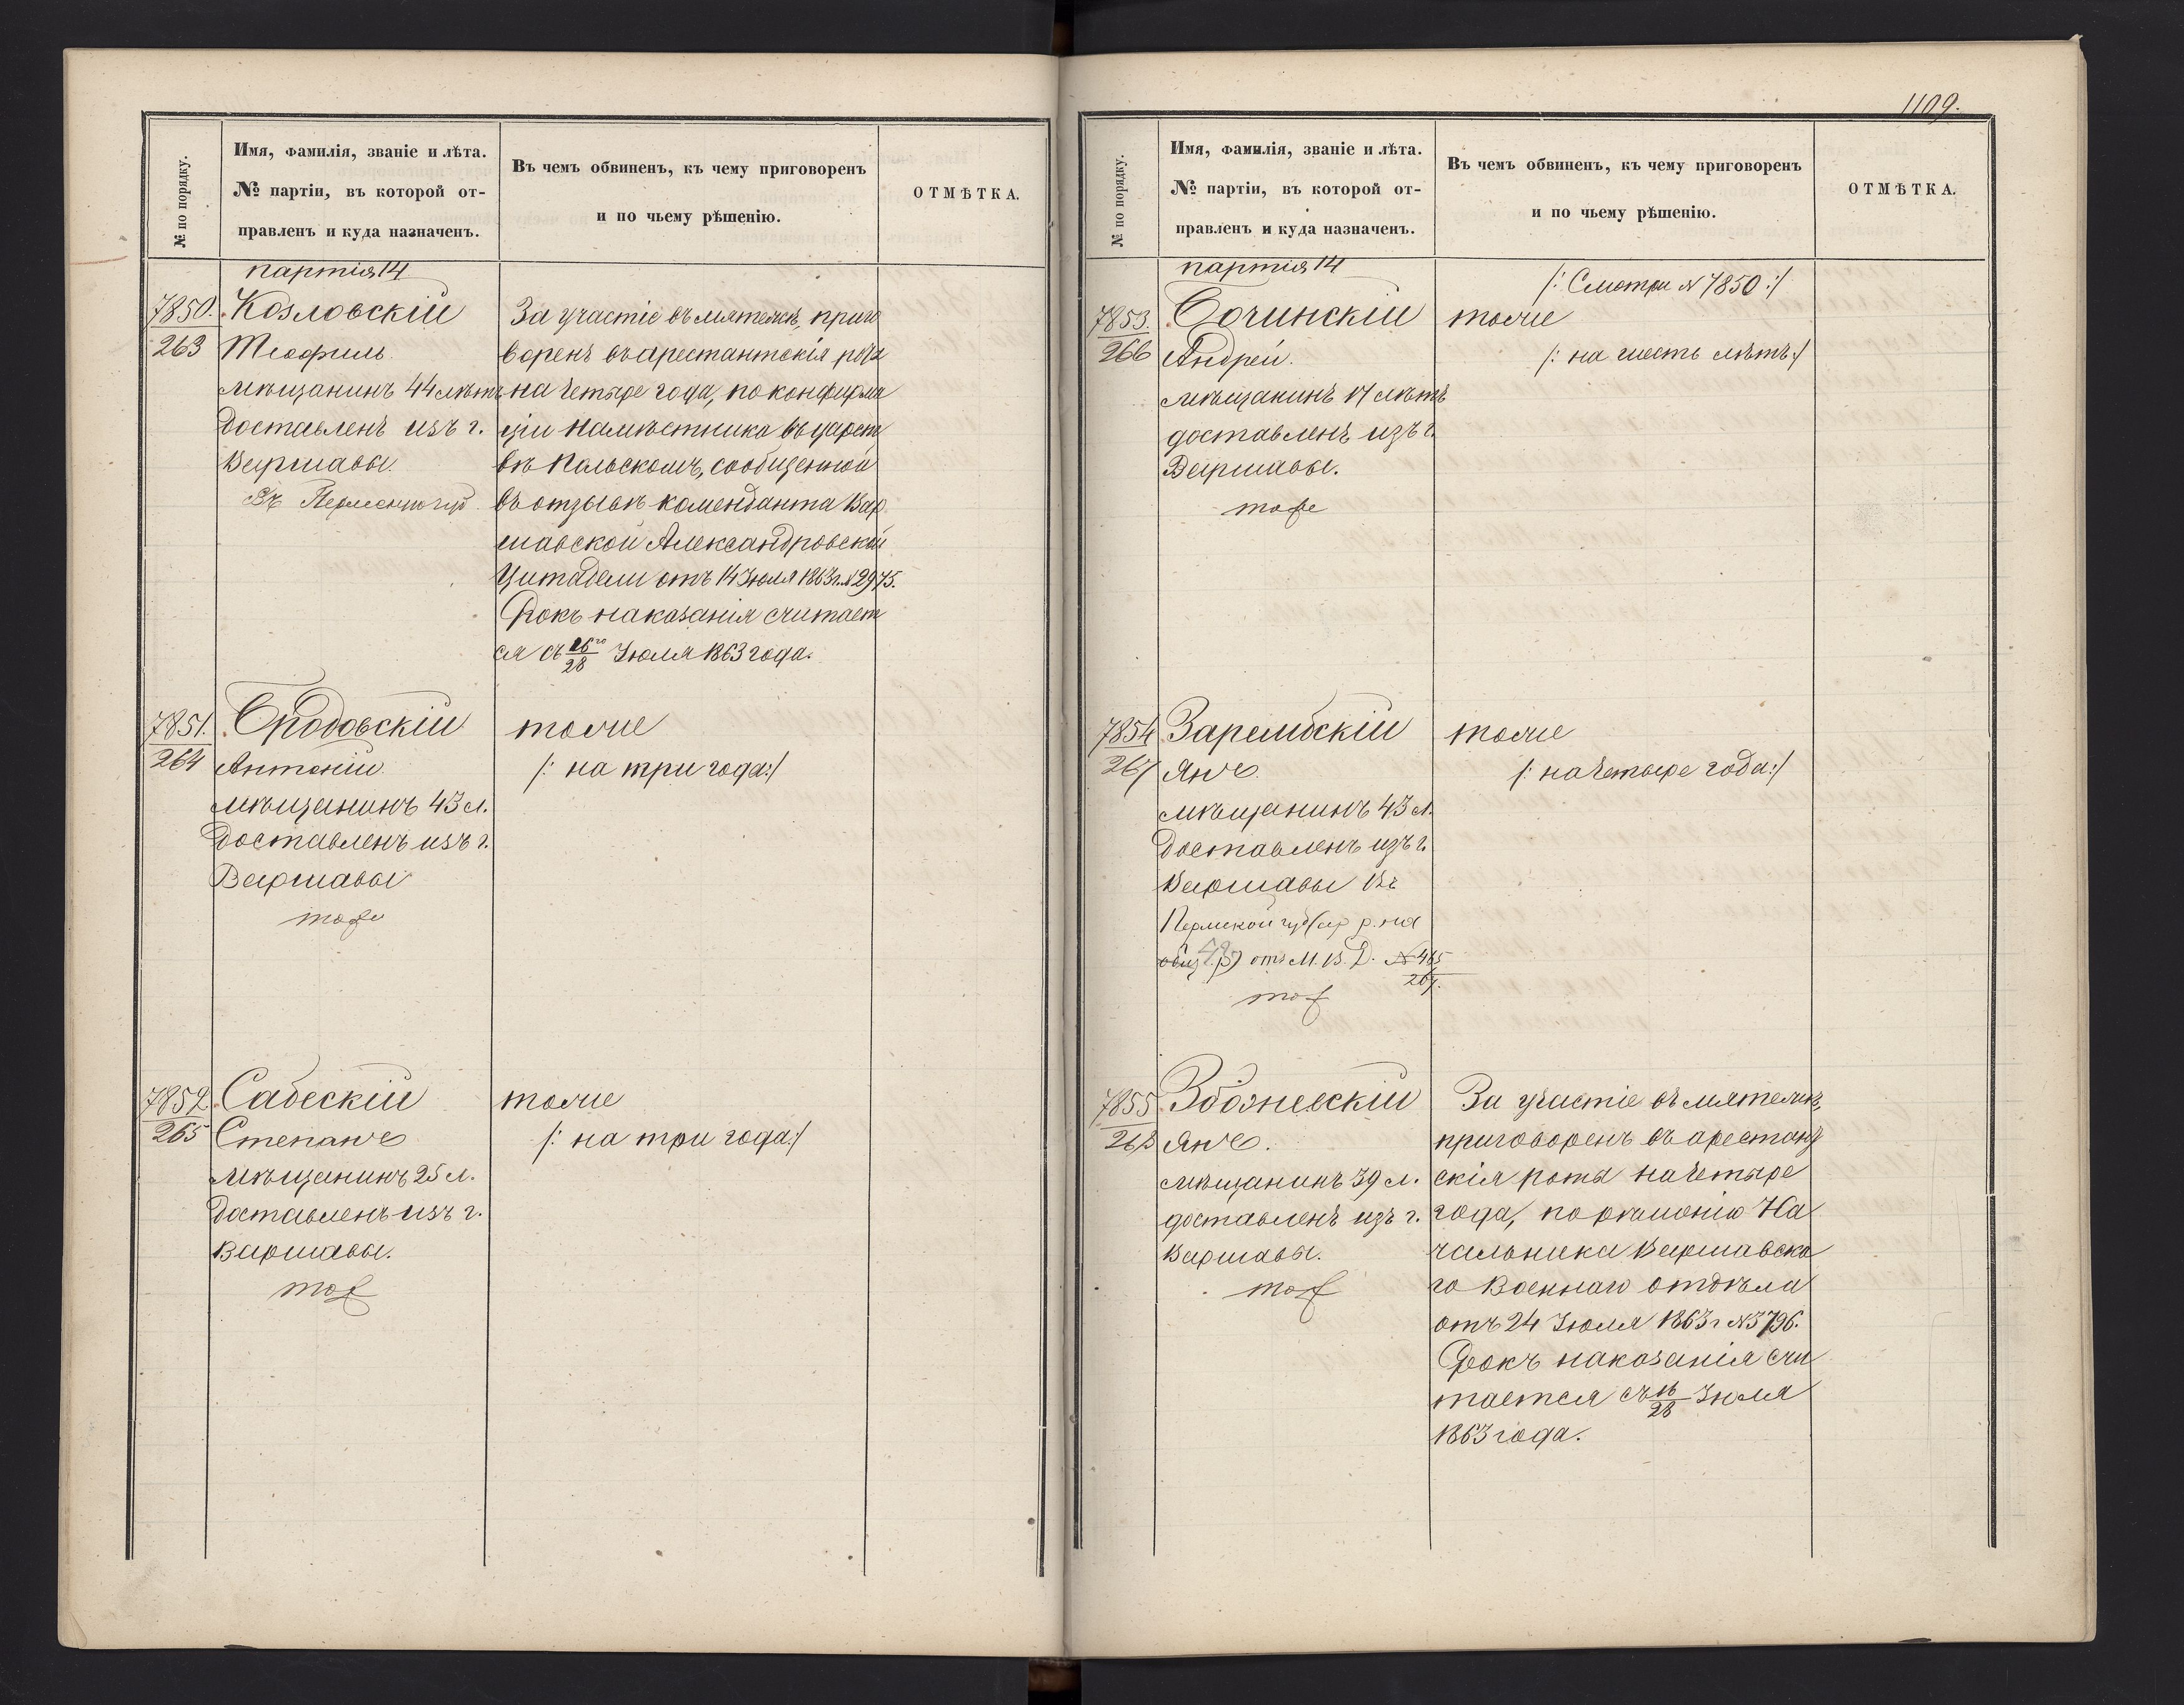 № по порядку.
Имя, фамилія, званіе и лѣта.
№ партіи, въ которой от-
правленъ и куда назначенъ.
Въ чемъ обвиненъ, къ чему приговоренъ
и по чьему рѣшенію.
ОТМѢТКА.
партія 14
7850.
263
Козловскій
Теофиль
мѣщанинъ 44 лѣтъ
доставленъ изъ г.
Варшавы.
Въ Пермскую губ.
За участіе въ мятежѣ, приго
воренъ въ арестантскія роты
на четыре года, по конфирма
ціи Намѣстника въ царст
вѣ Польскомъ, сообщенной
въ отзывѣ коменданта Вар
шавской Александровской
Цитадели отъ 14 Іюля 1863 г. № 2975.
Срокъ наказанія считает
ся съ 16го/28 Іюля 1863 года.
7851.
264
Бродовскій
Антоній
мѣщанинъ 43 л.
доставленъ изъ г.
Варшавы
тоже
тоже
/: на три года:/
7852
265
Сабескій
Степанъ
мѣщанинъ 25 л.
доставленъ изъ г.
Варшавы.
тож
тоже
/: на три года:/
1109.
№ по порядку.
Имя, фамилія, званіе и лѣта.
№ партіи, въ которой от-
правленъ и куда назначенъ.
Въ чемъ обвиненъ, къ чему приговоренъ
и по чьему рѣшенію.
ОТМѢТКА.
партія 14
7853.
266
Бочинскій
Андрей.
мѣщанинъ 17 лѣтъ
доставленъ изъ г.
Варшавы.
тоже
/: Смотри № 7850 :/
тоже
/: на шесть лѣтъ:/
7854
267
Зарембскій
Янъ
мѣщанинъ 43 л.
доставленъ изъ г.
Варшавы Въ
Пермской губ
отъ М. В. Д. № 465
267.
тож
тоже
/: на четыре года:/
7855
268
Збожневскій
Янъ.
мѣщанинъ 39 л.
доставленъ изъ г.
Варшавы.
тож
За участіе въ мятежѣ,
приговоренъ въ арестант
скія роты на четыре
года, по рѣшенію На
чальника Варшавска
го Военнаго отдѣла
отъ 24 Іюля 1863 г № 3796.
Срокъ наказанія счи
тается съ 16/28 Іюля
1863 года.